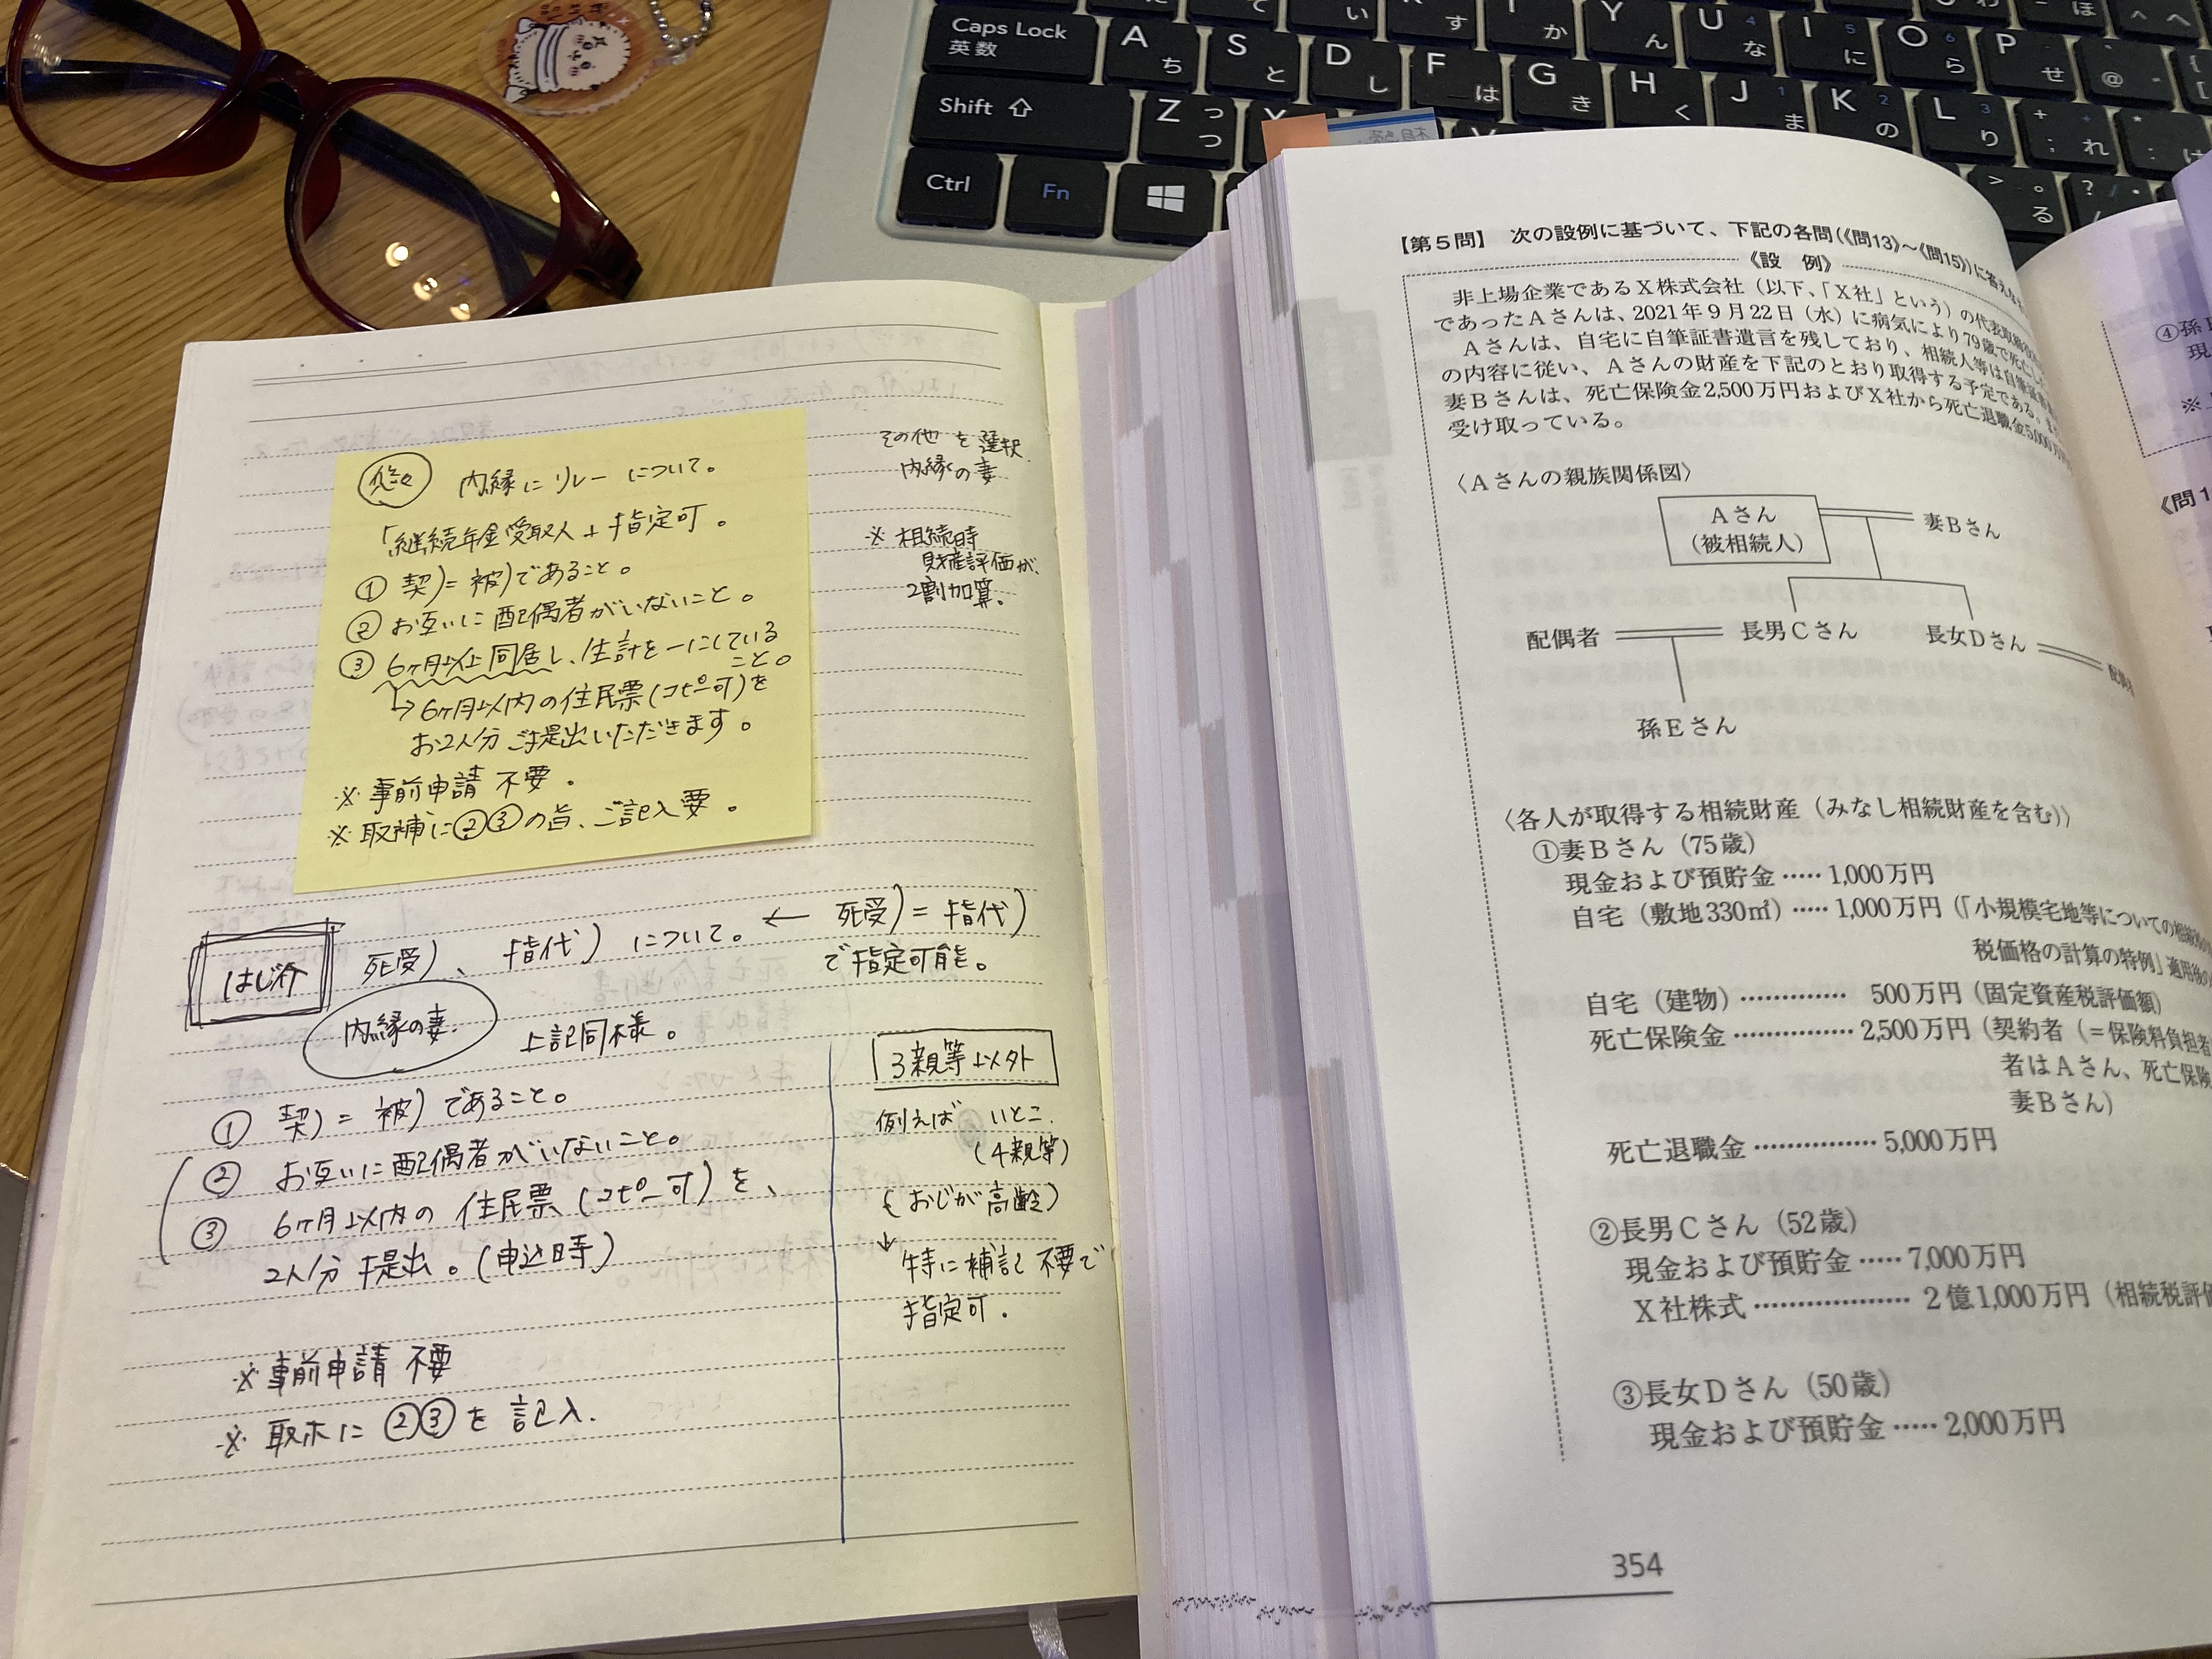 Caps Lock
英数
A
ち
S
と
D
し
F
は
G
き
H
く
J
ま
K
の
L
り
Shift
Z
つ
っ
Ctrl
Fn
Y
ん
U
な
I
に
O
ら
P
せ
内縁にリレーについて。
「継続年金受取人+指定可。
① 契)=被)であること。
② お互いに配偶者がいないこと。
③ 6ヶ月以上同居し、生計を一にしている
こと。
→6ヶ月以内の住民票(コピー可)を
お2人分ご提出いただきます。
※事前申請 不要。
※取補に②③の旨、ご記入要。
その他を選択
内縁の妻
※相続時
財産評価が、
2割加算.
はじ介
死受)、指代)について。← 死受)=指代)
で指定可能。
内縁の妻.
上記同様。
① 契)=被)であること。
② お互いに配偶者がいないこと。
③ 6ヶ月以内の住民票(コピー可)を、
2人分提出。(申込時)
※事前申請 不要
※取ホに②③を記入.
3親等以外
例えば いとこ.
(4親等)
(おじが高齢)
↓
特に補記不要で
指定可.
【第5問】 次の設例に基づいて、下記の各問(《問13》~《問15》)に答えなさ
《設 例》
非上場企業であるX株式会社(以下、「X社」という)の代表取締
であったAさんは、2021年9月22日(水)に病気により79歳で死亡し
Aさんは、自宅に自筆証書遺言を残しており、相続人等は自筆証書
の内容に従い、Aさんの財産を下記のとおり取得する予定である。
妻Bさんは、死亡保険金2,500万円およびX社から死亡退職金5,000万
受け取っている。
〈Aさんの親族関係図〉
Aさん
(被相続人)
妻Bさん
配偶者
長男Cさん
長女Dさん
孫Eさん
〈各人が取得する相続財産(みなし相続財産を含む)〉
①妻Bさん(75歳)
現金および預貯金 ····· 1,000万円
自宅(敷地330㎡) ····· 1,000万円(「小規模宅地等についての相続
税価格の計算の特例」適用後の
自宅(建物) ············· 500万円(固定資産税評価額)
死亡保険金 ··············· 2,500万円(契約者(=保険料負担者
者はAさん、死亡保険
妻Bさん)
死亡退職金 ··············· 5,000万円
②長男Cさん(52歳)
現金および預貯金 ····· 7,000万円
X社株式 ··················· 2億1,000万円(相続税評価
③長女Dさん(50歳)
現金および預貯金 ····· 2,000万円
354
④孫
現
※
《問1